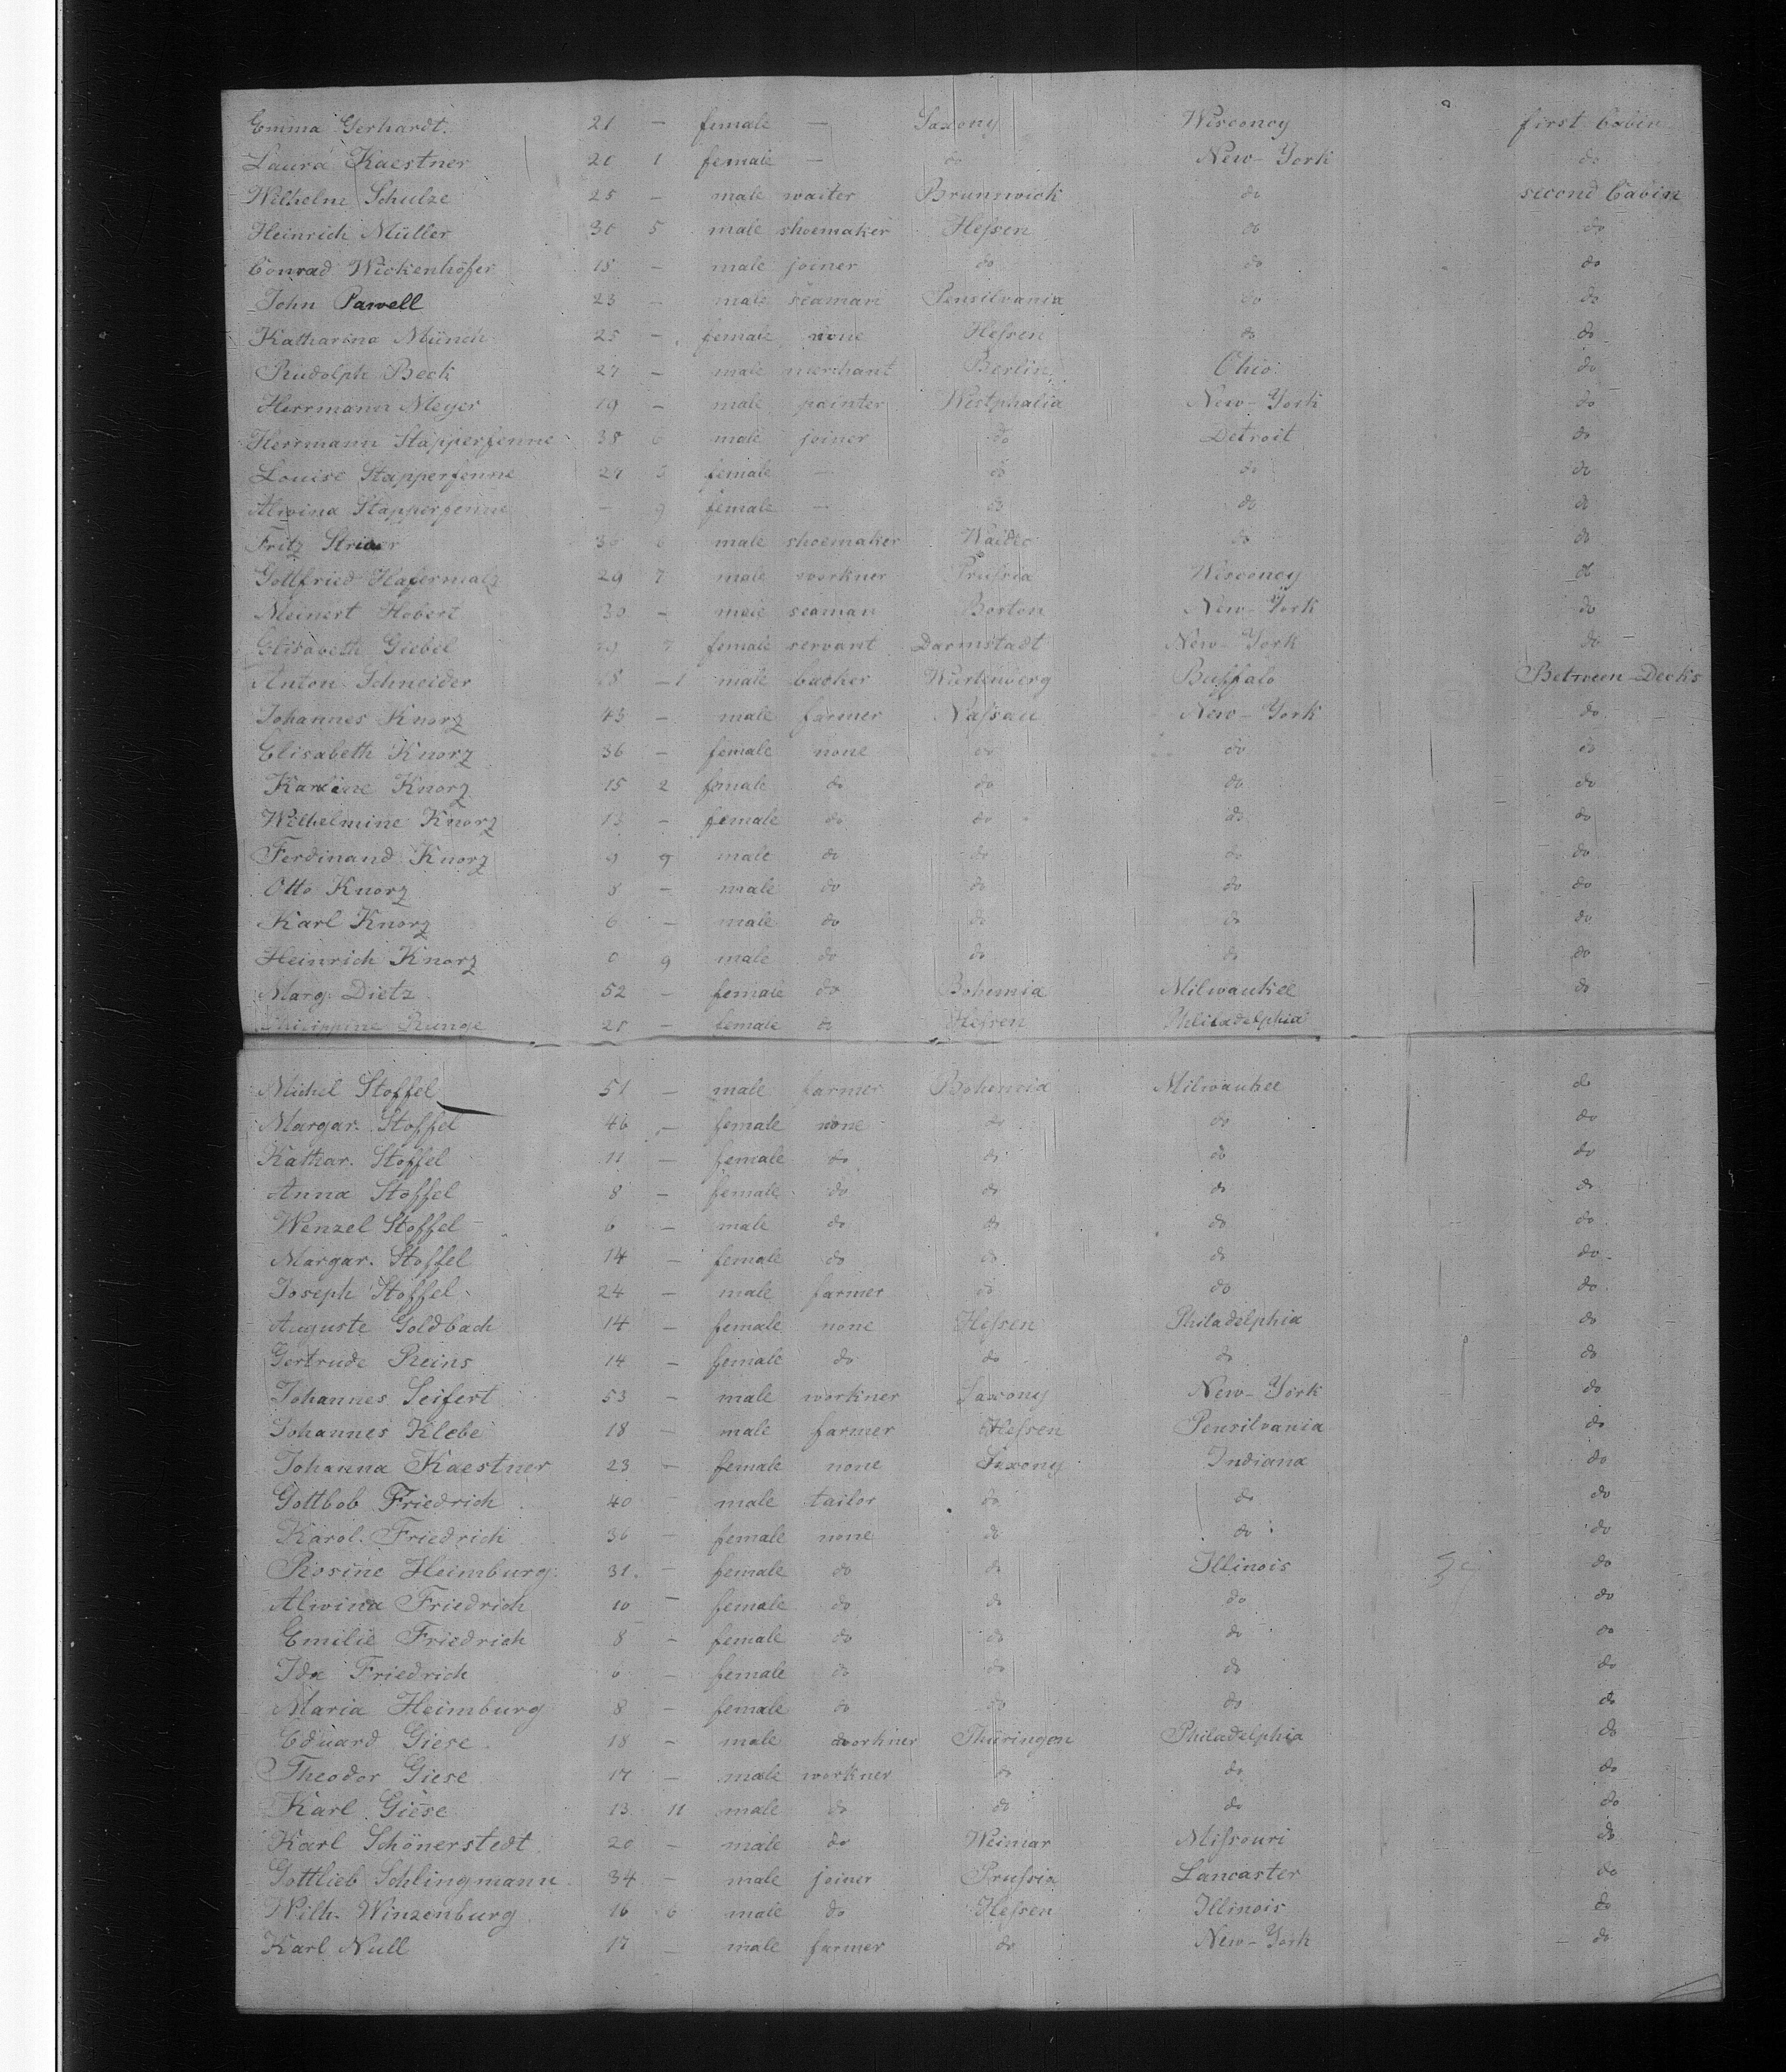 Emma Gerhardt. 21 — female — Saxony Wisconcy first Cabin
Laura Kaestner 20 1 female — do New-York do
Wilhelm Schulze 25 — male waiter Brunswick do second Cabin
Heinrich Müller 30 5 male shoemaker Heſsen do do
Conrad Wickenhöfer 18 — male joiner do do do
John Pawell 23 — male seaman Pensilvania do do
Katharina Münch 25 — female none Heſsen do do
Rudolph Beck 27 — male merchant Berlin Ohio do
Herrmann Meyer 19 — male painter Westphalia New-York do
Herrmann Stapperfenne 38 6 male joiner do Detroit do
Louise Stapperfenne 27 3 female — do do do
Alwina Stapperfenne — 9 female — do do do
Fritz male shoemaker do do
Gottfried Hafermalz 29 7 male workner Pruſsia Wisconcy do
Meinert Hobert 30 — male seaman Borton New-York do
Elisabeth Giebel female servant Darmstadt New-York do
Anton Schneider male backer Würtenberg Buffalo Between-Decks
Johannes Knorz 43 — male farmer Naſsau New-York do
Elisabeth Knorz 36 — female none do do do
Karline Knorz 15 2 female do do do do
Wilhelmine Knorz 13 — female do do do do
Ferdinand Knorz 9 9 male do do do do
Otto Knorz 8 — male do do do do
Karl Knorz 6 — male do do do do
Heinrich Knorz 0 9 male do do do do
Marg. Dietz 52 — female do Bohemia Milwaukee do
Philippine Runge 21 — female do Heſsen Philadelphia
Michel Stoffel 51 — male farmer Bohemia Milwaukee do
Margar. Stoffel 46 — female none do do do
Kathar. Stoffel 11 — female do do do do
Anna Stoffel 8 — female do do do do
Wenzel Stoffel 6 — male do do do do
Margar. Stoffel 14 — female do do do do
Joseph Stoffel 24 — male farmer do do do
Auguste Goldbach 14 — female none Heſsen Philadelphia do
Gertrude Reins 14 — female do do do do
Johannes Seifert 53 — male workner Saxony New-York do
Johannes Klebe 18 — male farmer Heſsen Pensilvania do
Johanna Kaestner 23 — female none Saxony Indiana do
Gottbob Friedrich 40 — male tailor do do do
Karol. Friedrich 36 — female none do do do
Rosine Heimburg 31. — female do do Illinois do
Alwina Friedrich 10 — female do do do do
Emilie Friedrich 8 — female do do do do
Ida Friedrich 6 — female do do do do
Maria Heimburg 8 — female do do do do
Eduard Giese 18 — male workner Thüringen Philadelphia do
Theodor Giese 17 — male workner do do do
Karl Giese 13 11 male do do do do
Karl Schönerstedt 20 — male do Weimar Miſsouri do
Gottlieb Schlingmann 34 — male joiner Pruſsia Lancaster do
Wilh. Winzenburg 16 6 male do Heſsen Illinois do
Karl Null 17 — male farmer do New-York do